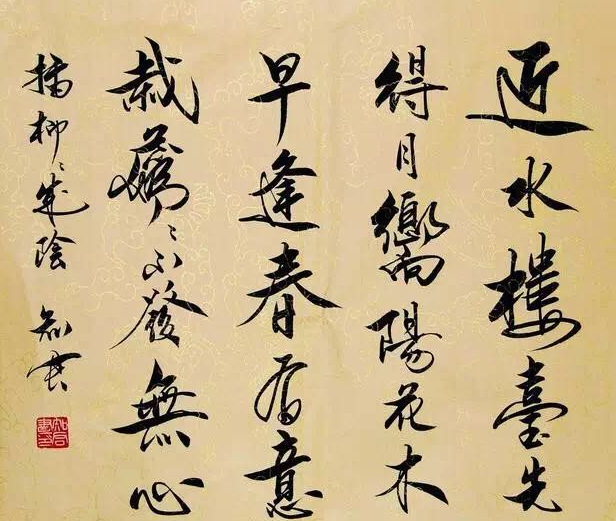 近水樓臺先
得月嚮陽花木
早逢春有意
栽蘤〻不發無心
插柳〻成陰 知